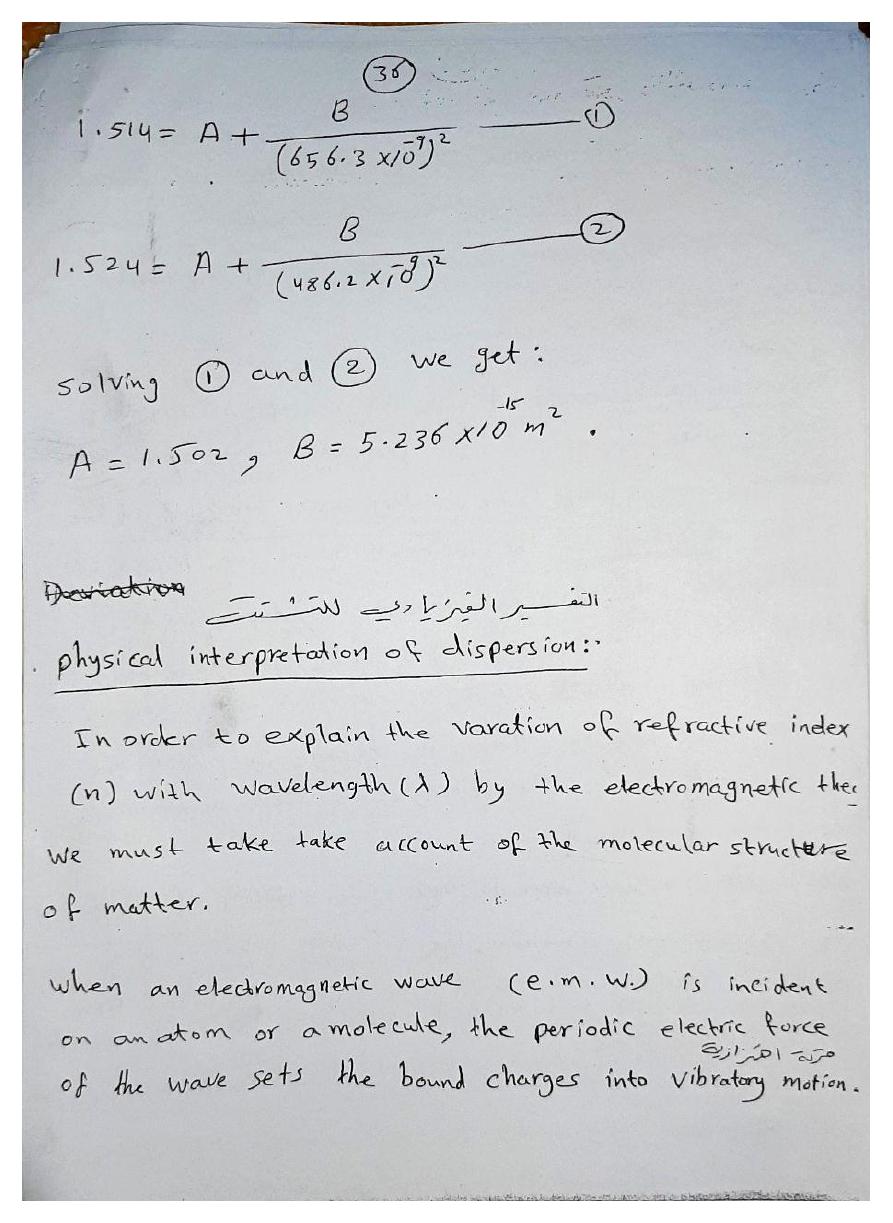 36
1.514 = A + B / (656.3 x10^-9)^2 ——— ①
1.524 = A + B / (486.2 x10^-9)^2 ——— ②
solving ① and ② we get :
A = 1.502 , B = 5.236 x10^-15 m^2 .
Deviation
التفسير الفيزياوي للتشتت
physical interpretation of dispersion:-
In order to explain the varation of refractive index
(n) with wavelength (λ) by the electromagnetic theo
We must take take account of the molecular structure
of matter.
When an electromagnetic wave (e.m.w.) is incident
on an atom or a molecule, the periodic electric force
حركة اهتزازية
of the wave sets the bound charges into vibratory motion.